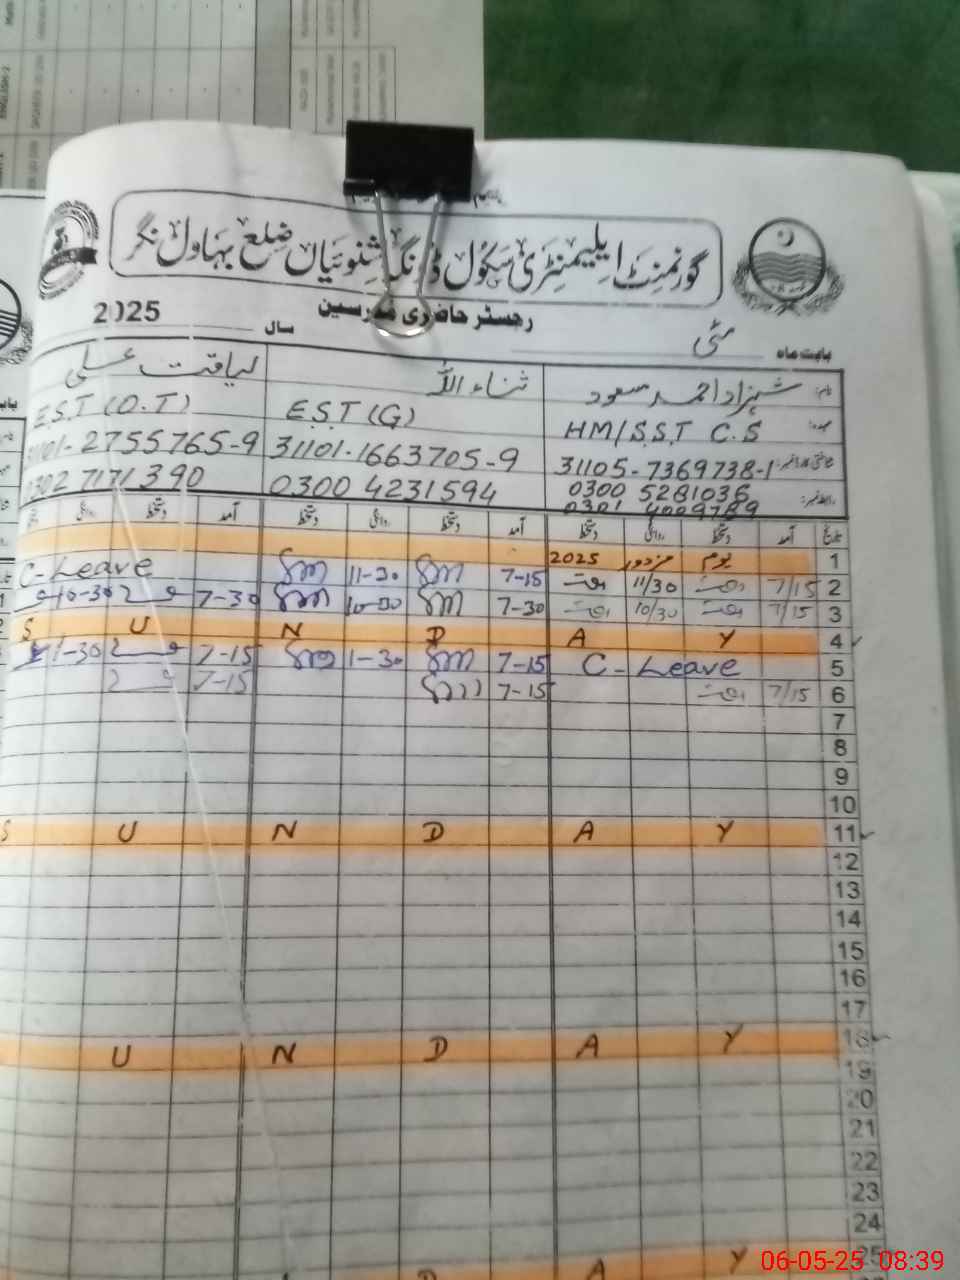 گورنمنٹ ایلیمنٹری سکول ڈرنگ شنوئیاں ضلع بہاول نگر
رجسٹر حاضری مدرسین
بابت ماہ مئی سال 2025
نام: شہزاد احمد مسعود ثناء اللہ لیاقت علی
عہدہ: HM/S.S.T C.S E.S.T (G) E.S.T (O.T)
31105-7369738-1 31101-1663705-9 31101-2755765-9
0300 5281036 0300 4231594 0302 7171390
0301 4009789
تاریخ آمد دستخط روانگی دستخط آمد دستخط روانگی دستخط آمد دستخط روانگی دستخط
1 یوم مزدور 2025
2 7/15 11/30 7-15 11-30 C-Leave
3 7/15 10/30 7-30 10-30 7-30 10-30
4 S U N D A Y
5 C-Leave 7-15 1-30 7-15 1-30
6 7/15 7-15 7-15
7
8
9
10
11 S U N D A Y
12
13
14
15
16
17
18 U N D A Y
19
20
21
22
23
24
25 D A Y
06-05-25 08:39